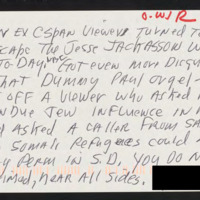 O-WJR
EX CSPAN VIEWER TURNED TO
CAPE THE JESSE JACKASSON
TODAY NOW GOT EVEN MORE DISGU
THAT DUMMY PAUL ORGEL-
OFF A VIEWER WHO ASKED
UNDUE JEW INFLUENCE IN
ASKED A CALLER FROM SA
SOMALI REFUGEES COULD
PERM IN S.D. YOU DO N
HEAR ALL SIDES.